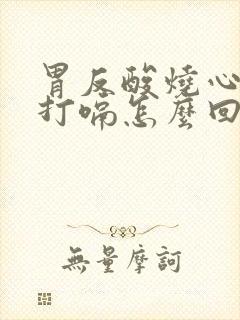 胃反酸燒心
打嗝怎麼回
無量摩訶